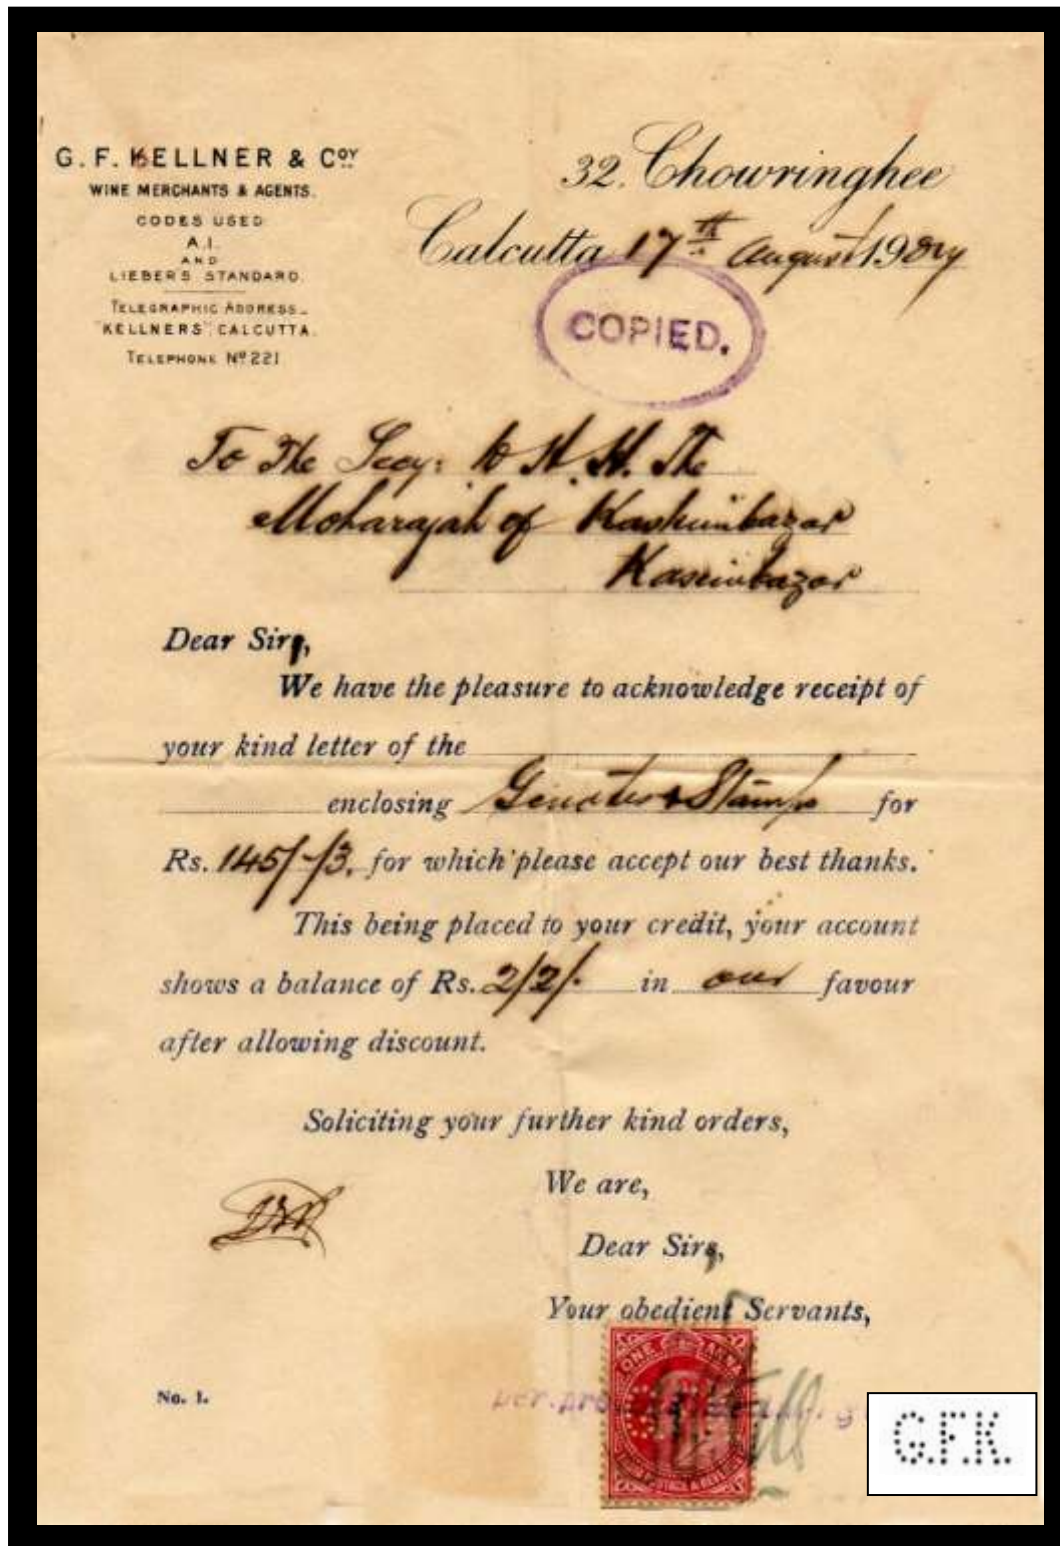 G. F. KELLNER & COY
WINE MERCHANTS & AGENTS.
CODES USED
A.I.
AND
LIEBER'S STANDARD.
TELEGRAPHIC ADDRESS_
"KELLNERS" CALCUTTA.
TELEPHONE No 221
32. Chowringhee
Calcutta 17th August 190
COPIED.
To The Secy: to H. H. The
Moharajah of Kashimbazar
Kasimbazar
Dear Sir,
We have the pleasure to acknowledge receipt of
your kind letter of the
enclosing Stamps for
Rs. 145/-/3. for which please accept our best thanks.
This being placed to your credit, your account
shows a balance of Rs. 2/2/- in our favour
after allowing discount.
Soliciting your further kind orders,
We are,
Dear Sir,
Your obedient Servants,
ONE ANNA
No. 1.
per. pro
G.F.K.